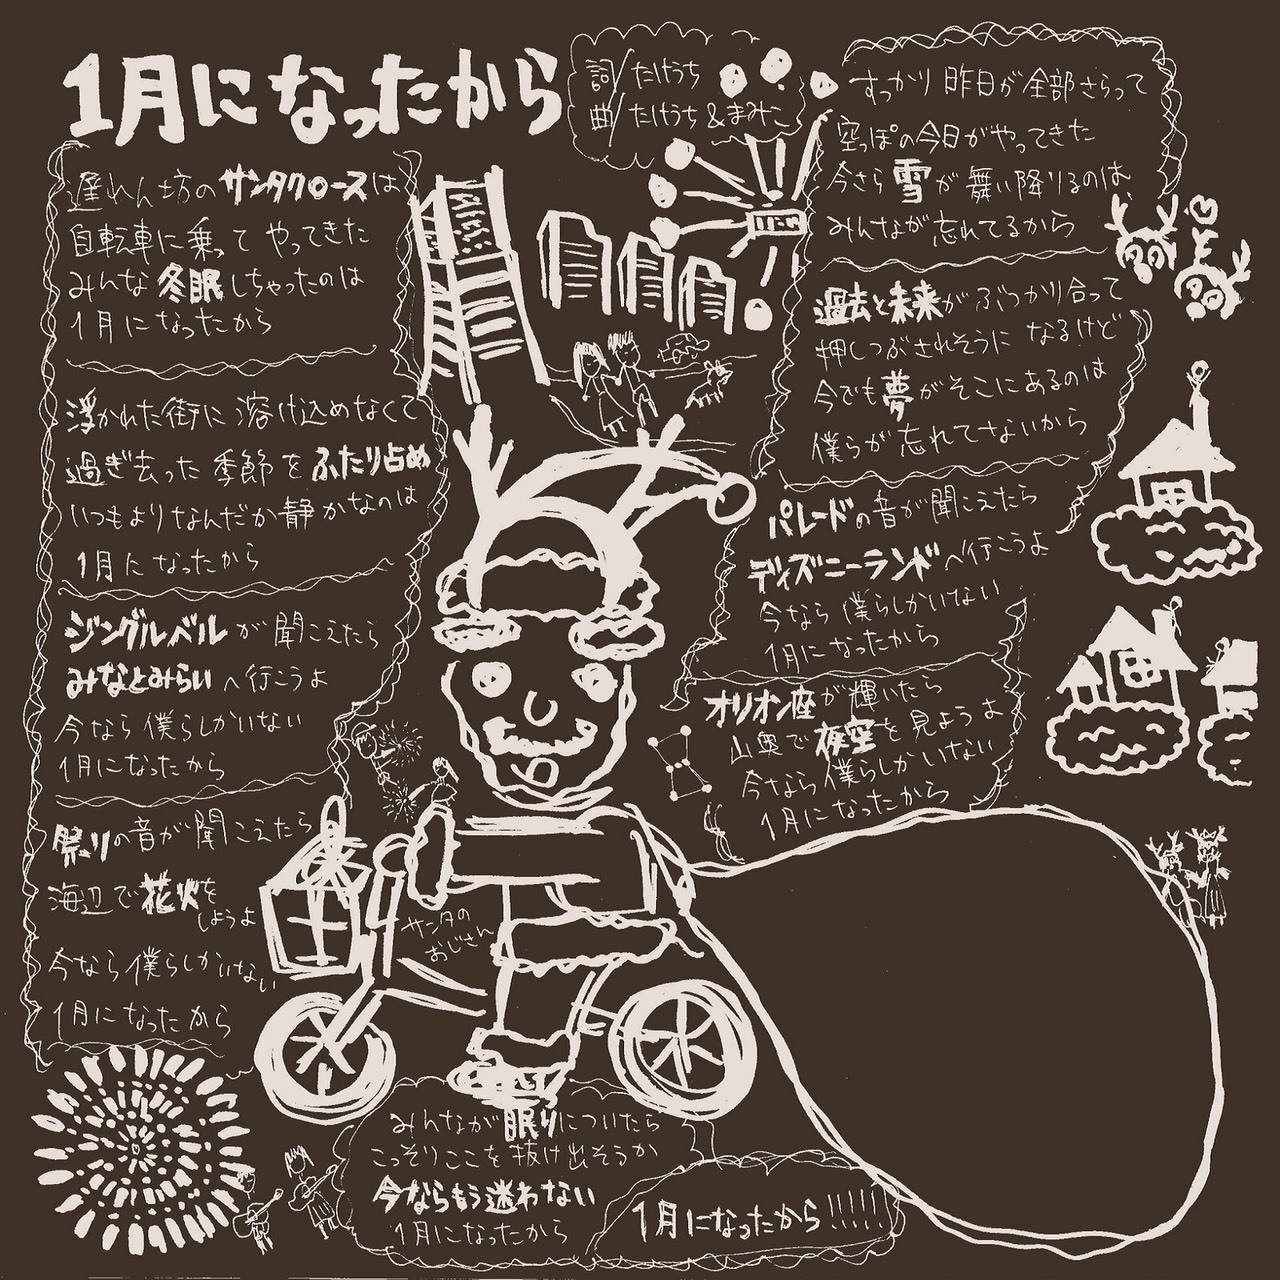 1月になったから
詞/たけうち
曲/たけうち&まみこ
遅れん坊のサンタクロースは
自転車に乗ってやってきた
みんな冬眠しちゃったのは
1月になったから
浮かれた街に溶け込めなくて
過ぎ去った季節をふたり占め
いつもよりなんだか静かなのは
1月になったから
ジングルベルが聞こえたら
みなとみらいへ行こうよ
今なら僕らしかいない
1月になったから
祭りの音が聞こえたら
海辺で花火を
しようよ
今なら僕らしかいない
1月になったから
すっかり昨日が全部さらって
空っぽの今日がやってきた
今さら雪が舞い降りるのは
みんなが忘れてるから
過去と未来がぶつかり合って
押しつぶされそうになるけど
今でも夢がそこにあるのは
僕らが忘れてないから
パレードの音が聞こえたら
ディズニーランドへ行こうよ
今なら僕らしかいない
1月になったから
オリオン座が輝いたら
山奥で夜空を見ようよ
今なら僕らしかいない
1月になったから
サンタの
おじさん
みんなが眠りについたら
こっそりここを抜け出そうか
今ならもう迷わない
1月になったから
1月になったから!!!!!!